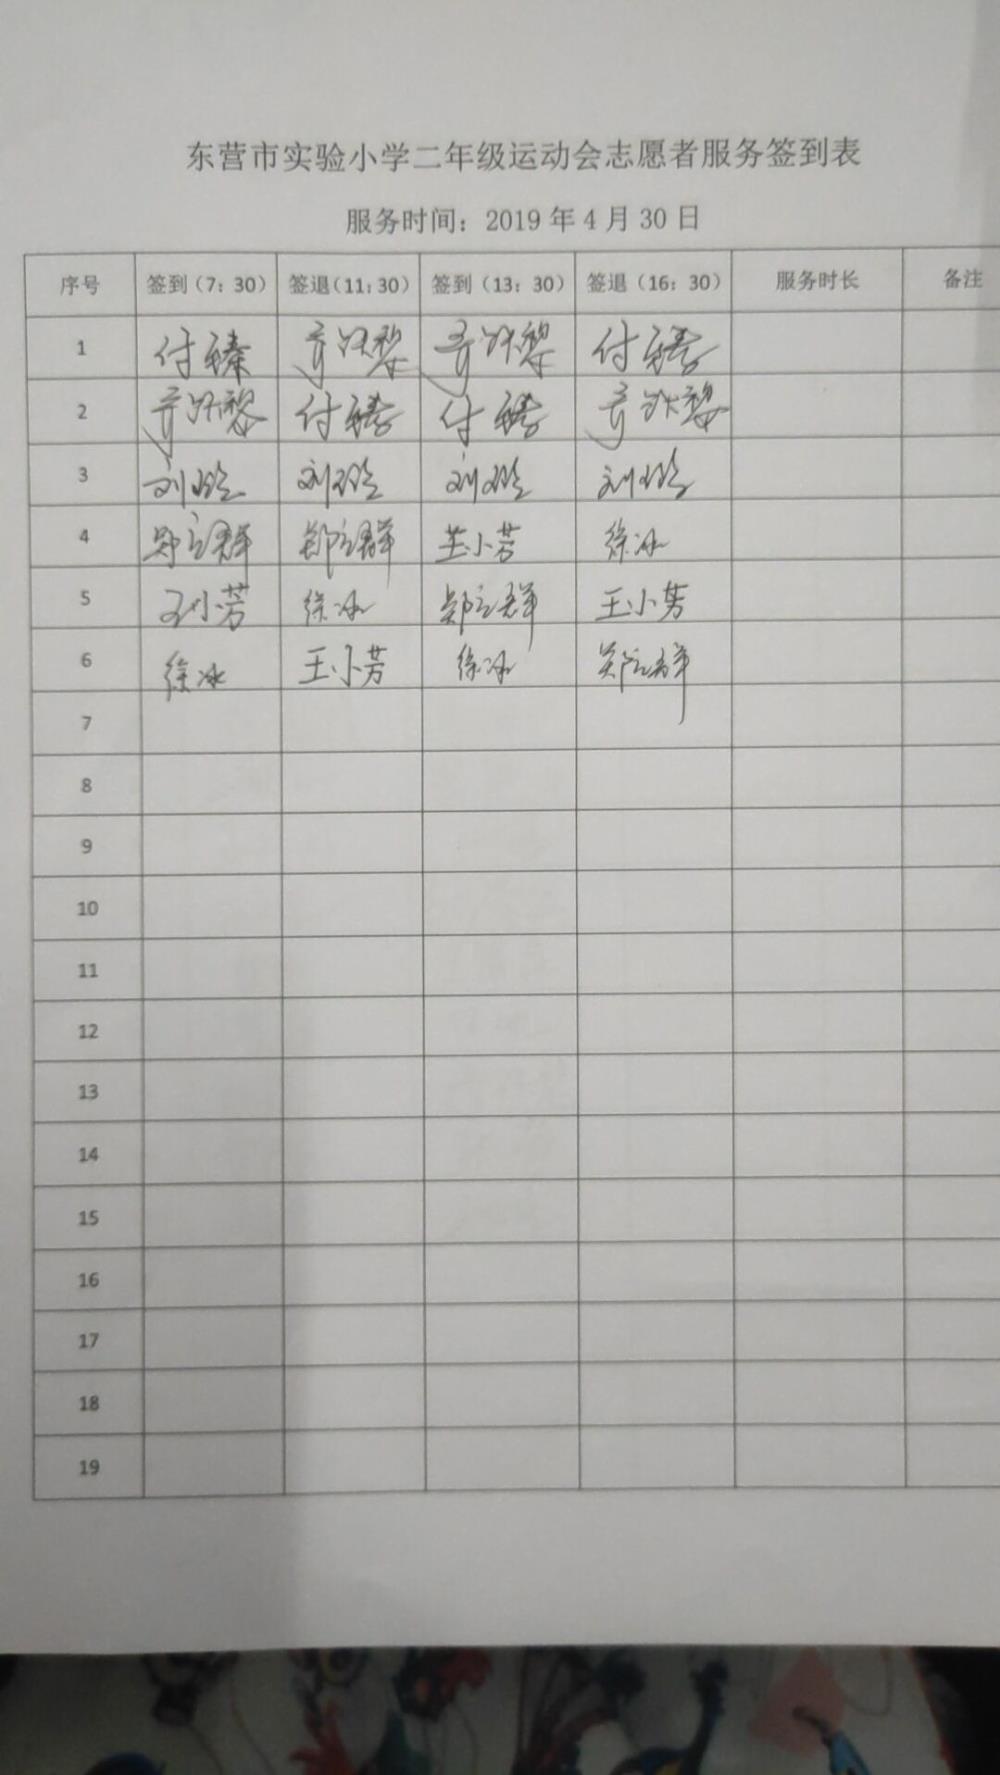 东营市实验小学二年级运动会志愿者服务签到表
服务时间：2019 年 4 月 30 日
序号 签到（7：30） 签退（11：30） 签到（13：30） 签退（16：30） 服务时长 备注
1 付臻 付臻
2 付臻 付臻
3 刘 刘 刘 刘
4 郑立群 郑立群 王小芳 徐冰
5 王小芳 徐冰 郑立群 王小芳
6 徐冰 王小芳 徐冰 郑立群
7
8
9
10
11
12
13
14
15
16
17
18
19